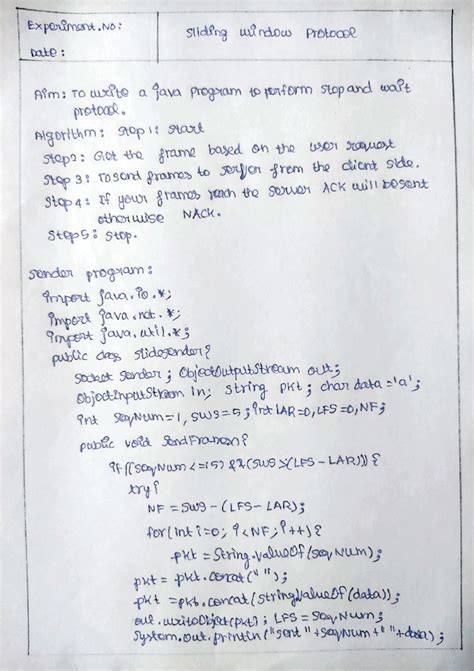 Experiment.No:
Date:
Sliding window Protocol
Aim: To write a java program to perform stop and wait
protocol.
Algorithm: Step 1: Start
Step2: Get the frame based on the user request
Step 3: To send frames to server from the client side.
Step 4: If your frames reach the server ACK will be sent
otherwise NACK.
Step5: Stop.
Sender program:
import java.io.*;
import java.net.*;
import java.util.*;
public class slidesender{
Socket sender; ObjectOutputStream out;
ObjectInputStream in; String pkt; char data='a';
int SeqNum=1, SWS=5; int LAR=0, LFS=0, NF;
public void SendFrames{
if((SeqNum<=15) &&(SWS>(LFS-LAR))) {
try{
NF = SWS-(LFS-LAR);
for(int i=0; i<NF; i++){
pkt = String.valueOf(seqNum);
pkt = pkt.concat(" ");
pkt = pkt.concat(String.valueOf(data));
out.writeObject(pkt); LFS = SeqNum;
System.out.println("sent"+seqNum+" "+data);